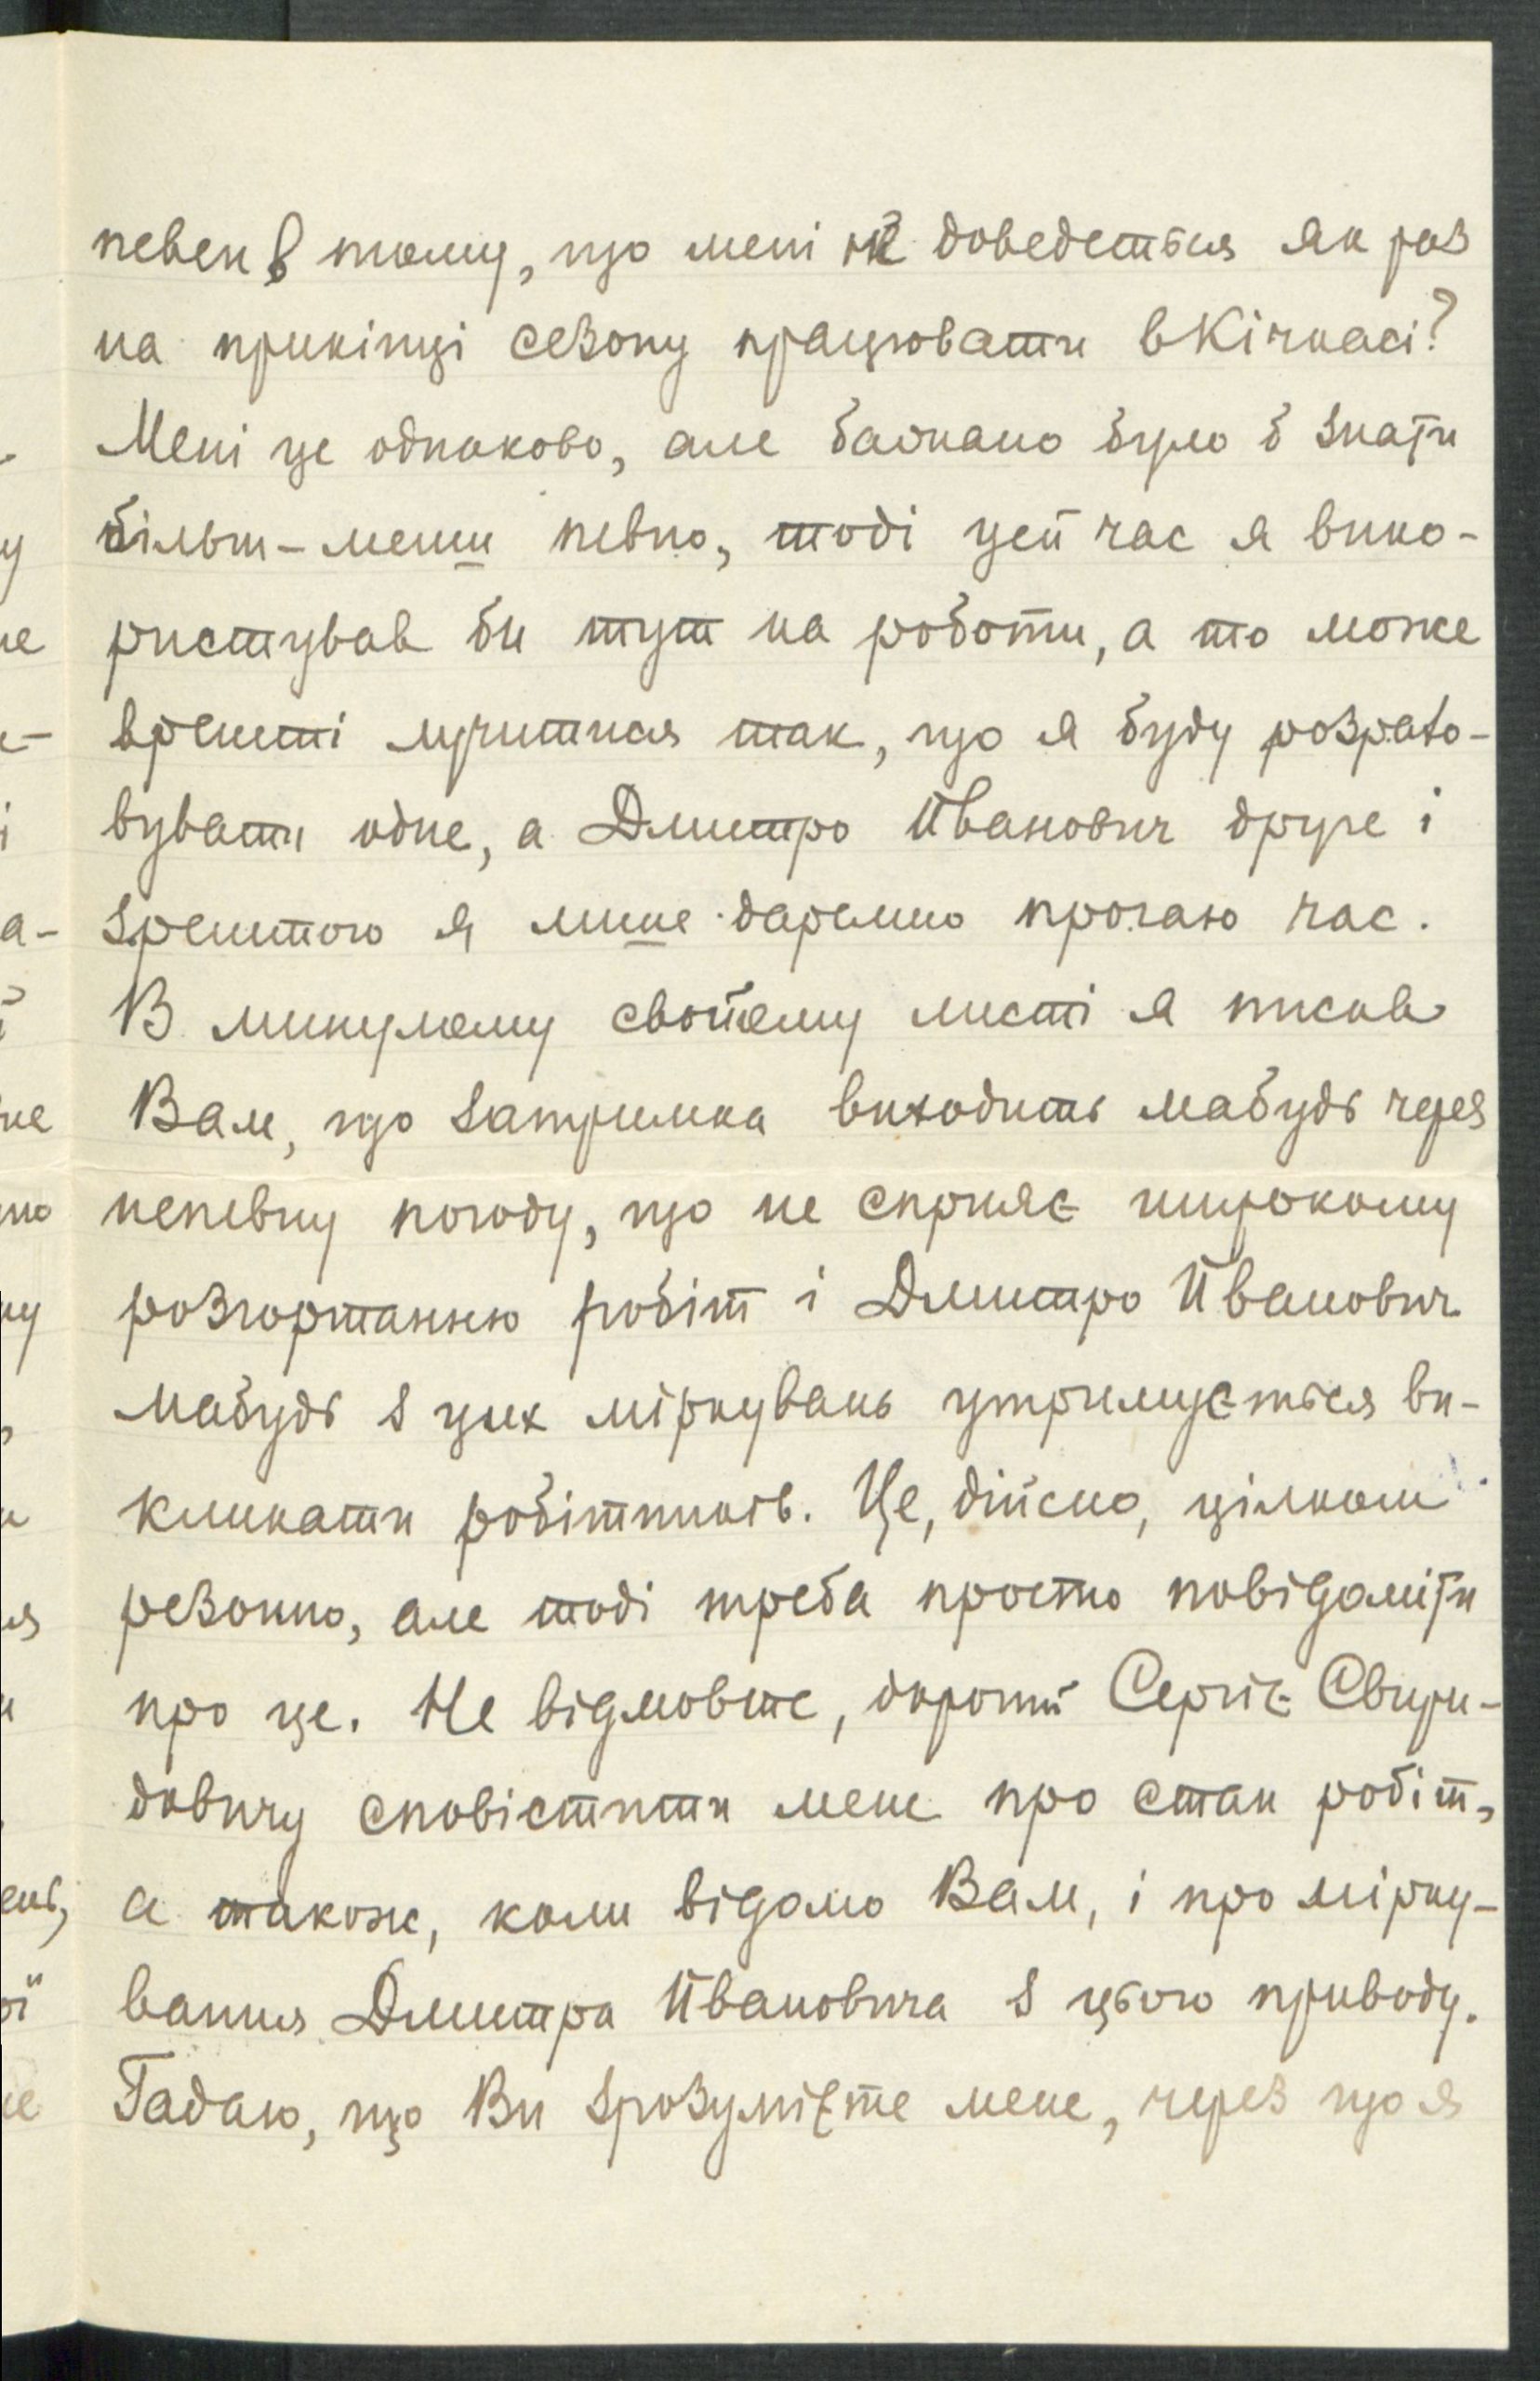 певен в тому, що мені не доведеться як раз
на прикінці сезону працювати в Кічкасі?
Мені це однаково, але бажано було б знати
більш-менш певно, тоді цей час я вико-
ристував би тут на роботи, а то може
врешті лучитися так, що я буду розрахо-
вувати одне, а Дмитро Йванович друге і
зрештою я лише даремно прогаю час.
В минулому свойому листі я писав
Вам, що затримка виходить мабудь через
непевну погоду, що не сприяє широкому
розгортанню робіт і Дмитро Йванович
мабудь з цих міркувань утримується ви-
кликати робітників. Це, дійсно, цілком
резонно, але тоді треба просто повідоміти
про це. Не відмовте, дорогий Сергіє Свири-
довичу сповістити мене про стан робіт,
а також, коли відомо Вам, і про мірку-
вання Дмитра Йвановича з цього приводу.
Гадаю, що Ви зрозумієте мене, через що я